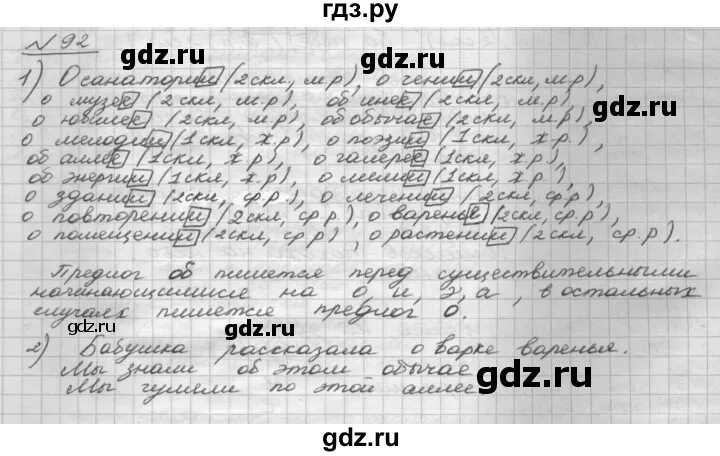 гдз.ру
№92
1) О санатории (2скл, м.р), о гении (2скл, м.р),
о музее (2скл, м.р), об инее (2скл, м.р),
о юбилее (2скл, м.р), об обычае (2скл, м.р),
о мелодии (1скл, ж.р), о поэзии (1скл, ж.р.),
об аллее (1скл, ж.р), о галерее (1скл, ж.р),
об энергии (1скл, ж.р), о линии (1скл, ж.р),
о здании (2скл, ф.р.), о лечении (2скл, ф.р)
о повторении (2скл, ср.р), о варенье (2скл, ср.р),
о помещении (2скл, ср.р), о растении (2скл, ср.р).
Предлог об пишется перед существительными
начинающимися на о и, э, а, в остальных
случаях пишется предлог о.
2) Бабушка рассказала о варке варенья.
Мы знали об этом обычае
Мы гуляли по этой аллее
gdz.ru
gdz.ru
gdz.ru
gdz.ru
gdz.ru
gdz.ru
gdz.ru
gdz.ru
gdz.ru
gdz.ru